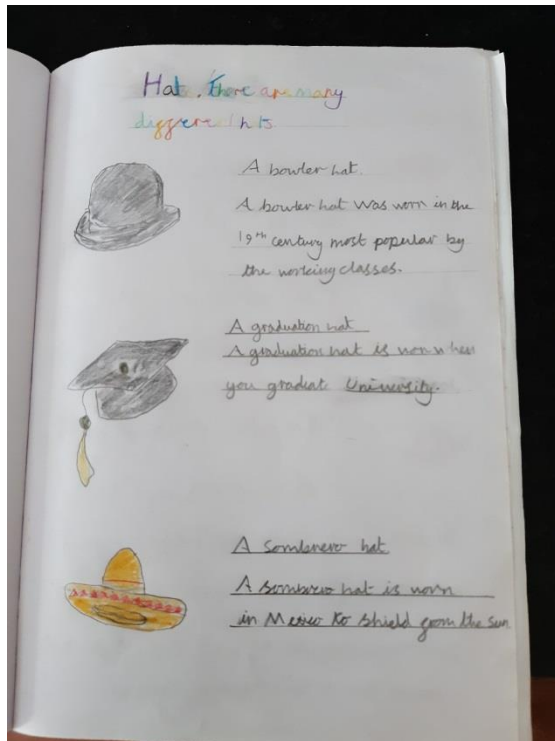 Hat. there are many
different hts
A bowler hat.
A bowler hat was worn in the
19th century most popular by
the working classes.
A graduation hat
A graduation hat is worn when
you graduat University.
A sombrero hat
A sombrero hat is worn
in Mexico to shield from the sun.